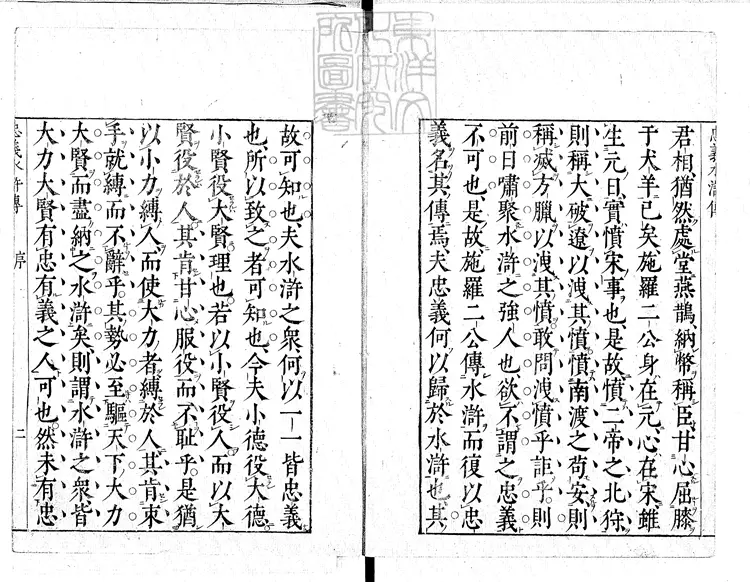 君相、猶然處堂燕鵲、納幣稱臣、甘心屈膝
于犬羊已矣施羅二公身在元心在宋雖
生元日、實憤宋事也、是故憤二帝之北狩
則稱大破遼以洩其憤憤南渡之苟安則
稱滅方臘以洩其憤敢問洩憤乎詎乎則
前日嘯聚水滸之強人也欲不謂之忠義
不可也、是故施羅二公傳水滸而復以忠
義名其傳焉夫忠義何以歸於水滸也其
故可知也、夫水滸之衆何以一一皆忠義
也、所以致之者可知也、今夫小德役大德
小賢役大賢理也若以小賢役人而以大
賢役於人其肯甘心服役而不恥乎是猶
以小力縛人而使大力者縛於人其肯束
手就縛而不辭乎其勢必至驅天下大力
大賢而盡納之水滸矣則謂水滸之衆皆
大力大賢有忠有義之人可也然未有忠
忠義水滸傳
序
二